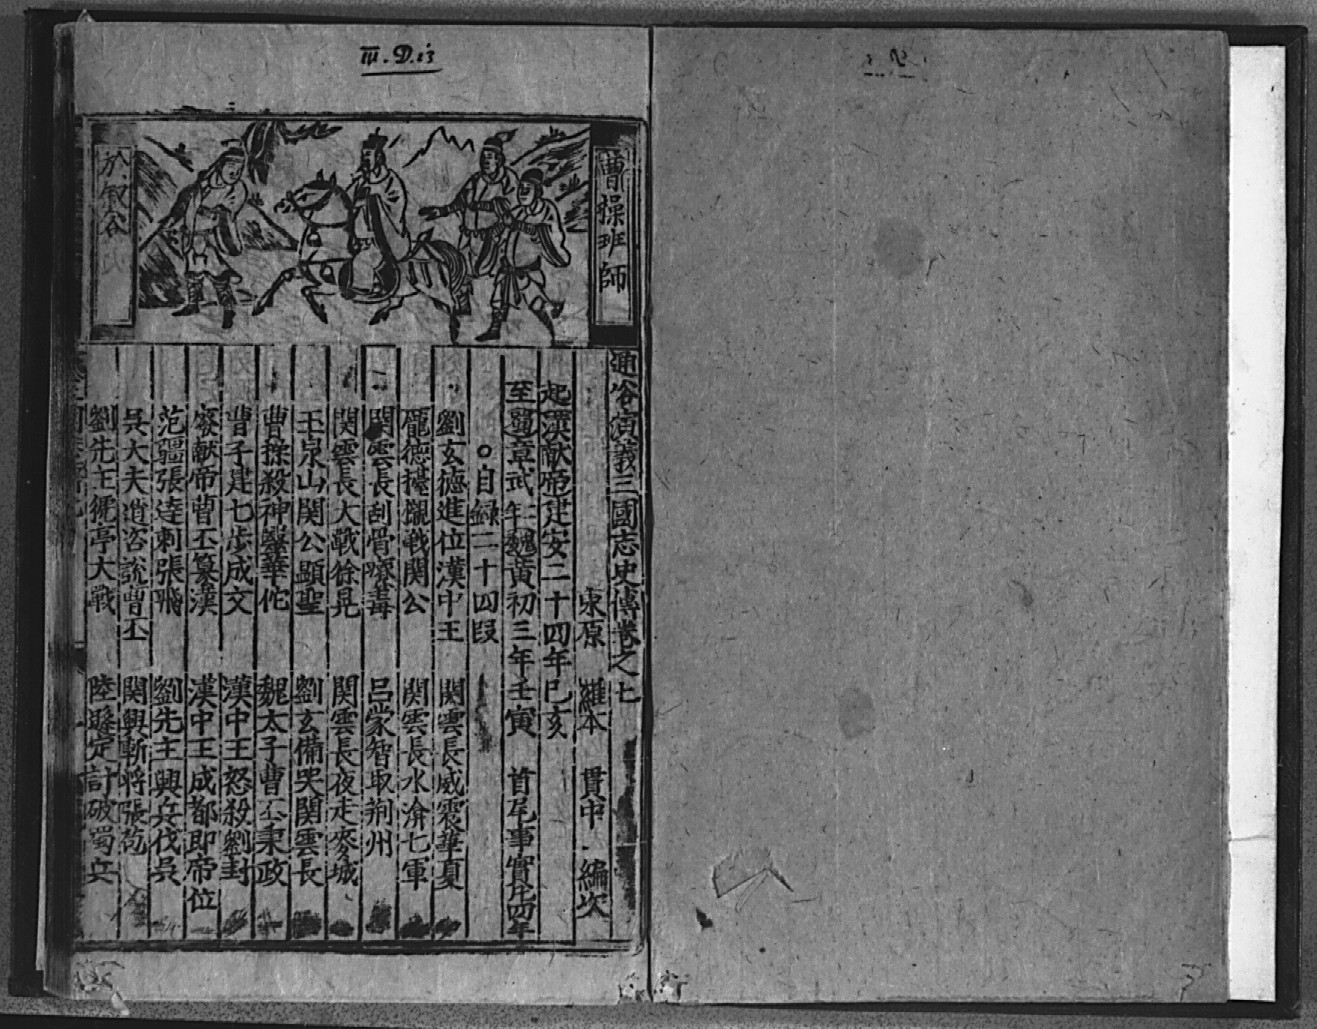 III.D.13
曹操班師
於叙谷
通俗演義三國志史傳卷之七
東原 羅本 貫中 編次
起漢献帝建安二十四年己亥
至蜀章武二年魏黃初三年壬寅 首尾事實共四年
○目録二十四段
劉玄德進位漢中王 関雲長威震華夏
龐德擡櫬戰関公 関雲長水渰七軍
関雲長刮骨療毒 呂蒙智取荊州
関雲長大戰徐晃 関雲長夜走麥城
玉泉山関公顯聖 劉玄備哭関雲長
曹操殺神醫華佗 魏太子曹丕秉政
曹子建七步成文 漢中王怒殺劉封
廢献帝曹丕篡漢 漢中王成都即帝位
范疆張達刺張飛 劉先主興兵伐吳
吳大夫趙咨說曹丕 関興斬將張苞
劉先主猇亭大戰 陸遜定計破蜀兵